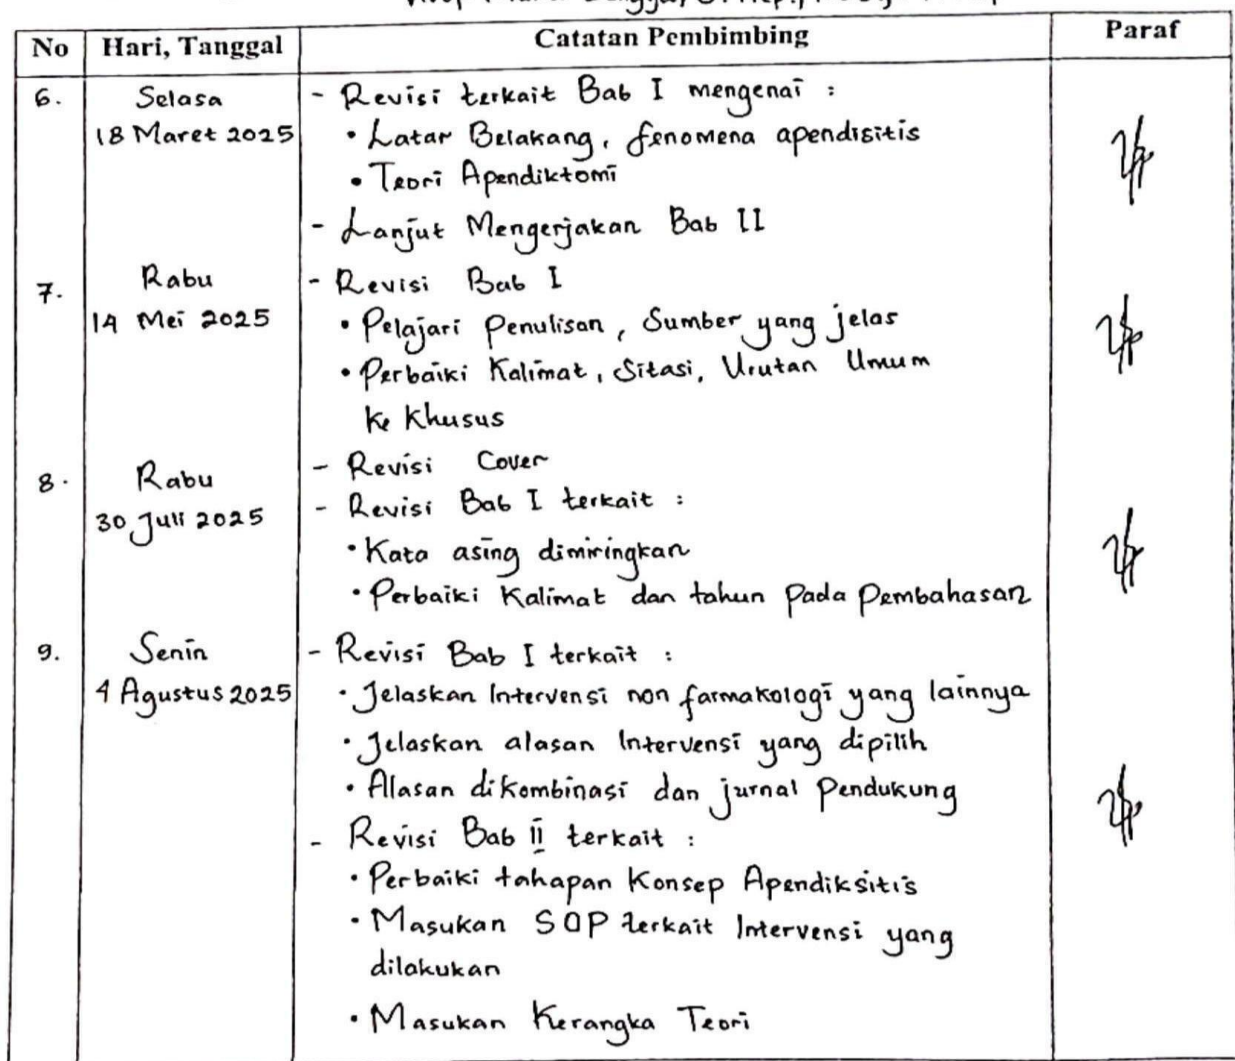 No Hari, Tanggal Catatan Pembimbing Paraf
6. Selasa - Revisi terkait Bab I mengenai :
18 Maret 2025 • Latar Belakang, fenomena apendisitis
• Teori Apendiktomi
- Lanjut Mengerjakan Bab II
7. Rabu - Revisi Bab I
14 Mei 2025 • Pelajari Penulisan, Sumber yang jelas
• Perbaiki Kalimat, Sitasi, Urutan Umum
ke Khusus
8. Rabu - Revisi Cover
30 Juli 2025 - Revisi Bab I terkait :
• Kata asing dimiringkan
• Perbaiki Kalimat dan tahun Pada Pembahasan
9. Senin - Revisi Bab I terkait :
4 Agustus 2025 • Jelaskan Intervensi non farmakologi yang lainnya
• Jelaskan alasan Intervensi yang dipilih
• Alasan dikombinasi dan jurnal Pendukung
- Revisi Bab II terkait :
• Perbaiki tahapan Konsep Apendiksitis
• Masukan SOP terkait Intervensi yang
dilakukan
• Masukan Kerangka Teori